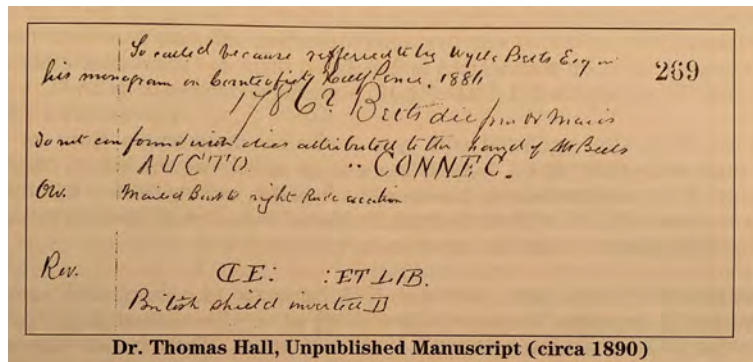 So called because refferred to by Wyllys Betts Esq in
his monogram on Counterfeit Half Pence, 1886
269
1786? Betts die from Dr Maris
Do not confound with dies attributed to the hand of Mr Betts
AUCTO. : CONNEC.
Ov. Mailed Bust to right Rude execution
Rev. INDE: :ET LIB.
British shield inverted D
Dr. Thomas Hall, Unpublished Manuscript (circa 1890)